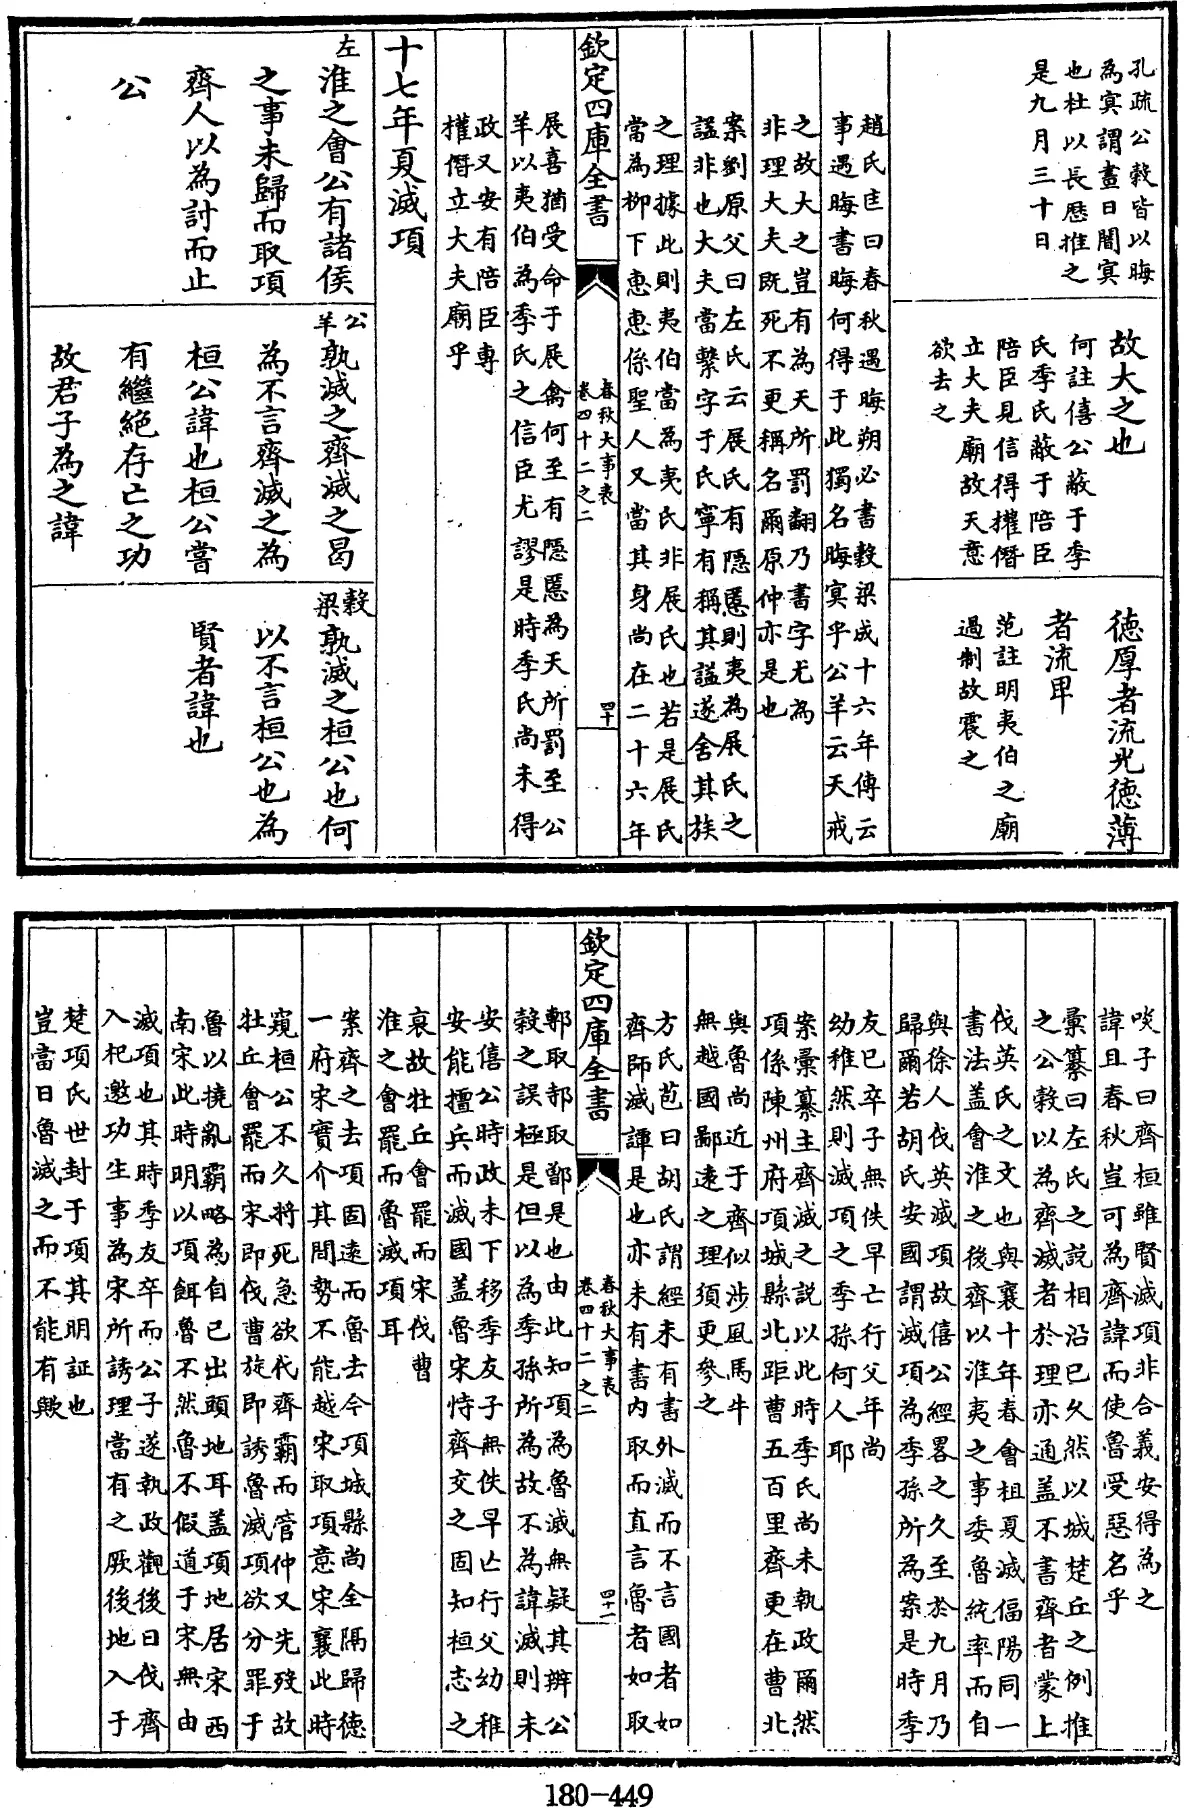 孔疏公穀皆以晦
為冥謂晝日闇冥
也杜以長厯推之
是九月三十日
故大之也
何註僖公蔽于季
氏季氏蔽于陪臣
陪臣見信得權僭
立大夫廟故天意
欲去之
德厚者流光德薄
者流卑
范註明夷伯之廟
過制故震之
趙氏匡曰春秋遇晦朔必書穀梁成十六年傳云
事遇晦書晦何得于此獨名晦冥乎公羊云天戒
之故大之豈有為天所罰翻乃書字尤為
非理大夫既死不更稱名爾原仲亦是也
案劉原父曰左氏云展氏有隱慝則夷為展氏之
諡非也大夫當繫字于氏寧有稱其諡遂舍其族
之理據此則夷伯當為夷氏非展氏也若是展氏
當為柳下惠惠係聖人又當其身尚在二十六年
欽定四庫全書
春秋大事表
卷四十二之二
四十
展喜猶受命于展禽何至有隱慝為天所罰至公
羊以夷伯為季氏之信臣尤謬是時季氏尚未得
政又安有陪臣專
權僭立大夫廟乎
十七年夏滅項
左
淮之會公有諸侯
之事未歸而取項
齊人以為討而止
公
公羊
孰滅之齊滅之曷
為不言齊滅之為
桓公諱也桓公嘗
有繼絕存亡之功
故君子為之諱
穀梁
孰滅之桓公也何
以不言桓公也為
賢者諱也
啖子曰齊桓雖賢滅項非合義安得為之
諱且春秋豈可為齊諱而使魯受惡名乎
彙纂曰左氏之說相沿已久然以城楚丘之例推
之公穀以為齊滅者於理亦通蓋不書齊者蒙上
伐英氏之文也與襄十年春會柤夏滅偪陽同一
書法蓋會淮之後齊以淮夷之事委魯統率而自
與徐人伐英滅項故僖公經畧之久至於九月乃
歸爾若胡氏安國謂滅項為季孫所為案是時季
友已卒子無佚早亡行父年尚
幼稚然則滅項之季孫何人耶
案彙纂主齊滅之說以此時季氏尚未執政爾然
項係陳州府項城縣北距曹五百里齊更在曹北
與魯尚近于齊似涉風馬牛
無越國鄙遠之理須更參之
方氏苞曰胡氏謂經未有書外滅而不言國者如
齊師滅譚是也亦未有書內取而直言魯者如取
欽定四庫全書
春秋大事表
卷四十二之二
四十一
鄟取邿取鄫是也由此知項為魯滅無疑其辨公
穀之誤極是但以為季孫所為故不為諱滅則未
安僖公時政未下移季友子無佚早亡行父幼稚
安能擅兵而滅國蓋魯宋恃齊交之固知桓志之
衰故牡丘會罷而宋伐曹
淮之會罷而魯滅項耳
案齊之去項固遠而魯去今項城縣尚全隔歸德
一府宋實介其間勢不能越宋取項意宋襄此時
窺桓公不久將死急欲代齊霸而管仲又先歿故
牡丘會罷而宋即伐曹旋即誘魯滅項欲分罪于
魯以撓亂霸略為自已出頭地耳蓋項地居宋西
南宋此時明以項餌魯不然魯不假道于宋無由
滅項也其時季友卒而公子遂執政觀後日伐齊
入杞邀功生事為宋所誘理當有之厥後地入于
楚項氏世封于項其明証也
豈當日魯滅之而不能有歟
180-449